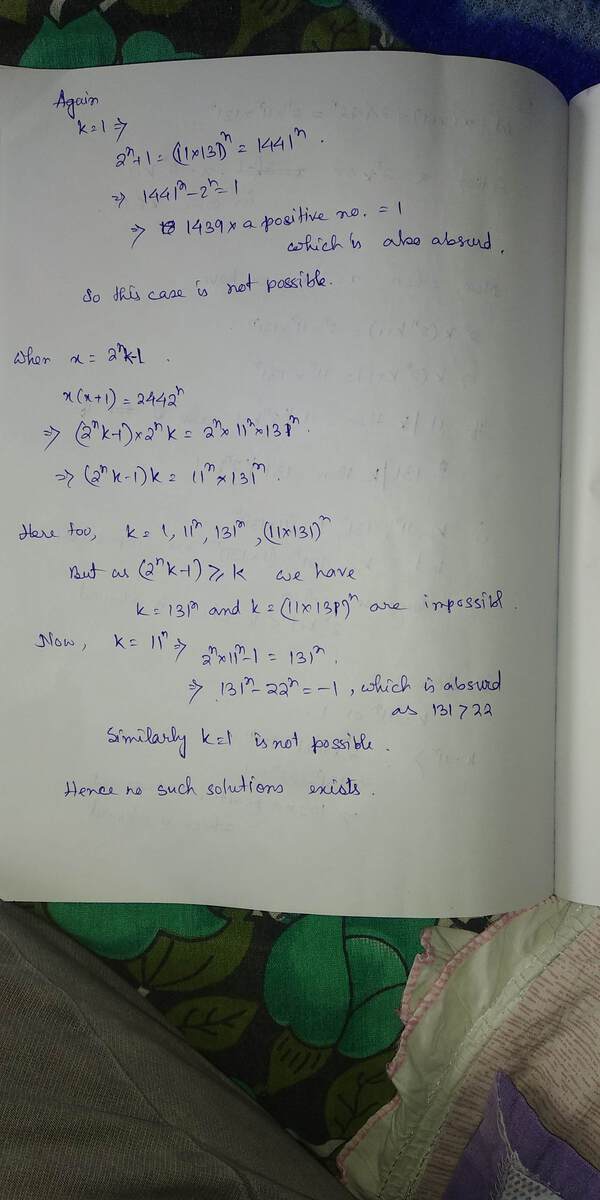 Again
k=1 ⇒
2ⁿ+1 = (11×131)ⁿ = 1441ⁿ.
⇒ 1441ⁿ-2ⁿ=1
⇒ 1439 × a positive no. = 1
which is also absurd.
So this case is not possible.
When x = 2ⁿk-1.
x(x+1) = 2442ⁿ
⇒ (2ⁿk-1)×2ⁿk = 2ⁿ×11ⁿ×131ⁿ.
⇒ (2ⁿk-1)k = 11ⁿ×131ⁿ.
Here too, k = 1, 11ⁿ, 131ⁿ, (11×131)ⁿ
But as (2ⁿk-1) ⩾ k we have
k = 131ⁿ and k = (11×131)ⁿ are impossibl.
Now, k = 11ⁿ ⇒ 2ⁿ×11ⁿ-1 = 131ⁿ.
⇒ 131ⁿ-22ⁿ = -1, which is absurd
as 131 > 22
Similarly k=1 is not possible.
Hence no such solutions exists.